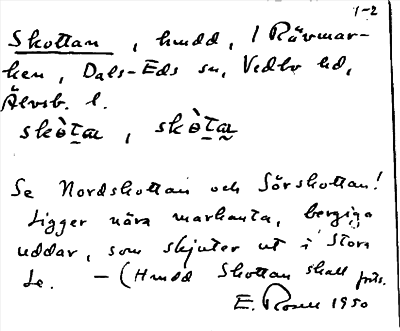 1-2
Skottan, hmdd, i Rävmar-
ken, Dals-Eds sn, Vedbo hd,
Älvsb. l.
skò̱taṉ, skò̱taṉ
Se Nordskottan och Sörskottan!
Ligger nära markanta, bergiga
uddar, som skjuter ut i Stora
Le. — (Hmdd Skottan skall
E. Rosell 1950